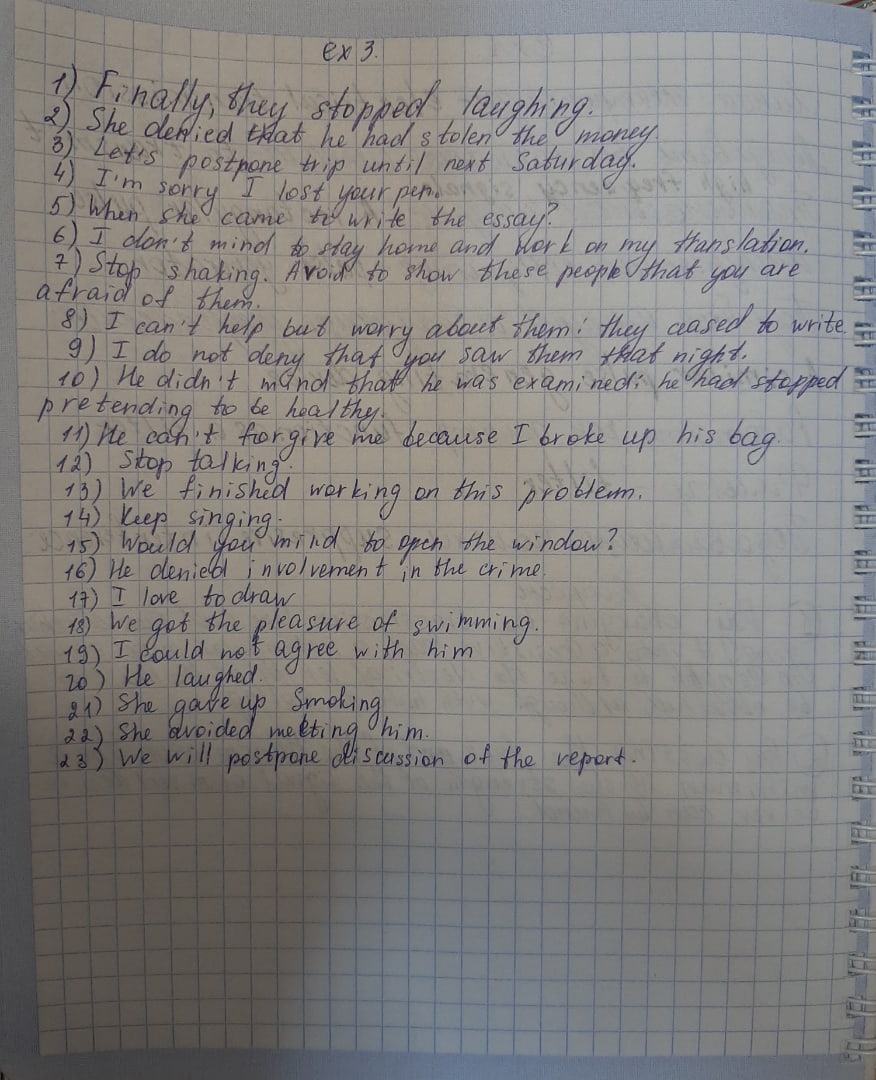 ex 3.
1) Finally, they stopped laughing.
2) She denied that he had stolen the money.
3) Let's postpone trip until next Saturday.
4) I'm sorry I lost your pen.
5) When she came to write the essay?
6) I don't mind to stay home and work on my translation.
7) Stop shaking. Avoid to show these people that you are
afraid of them.
8) I can't help but worry about them: they ceased to write.
9) I do not deny that you saw them that night.
10) He didn't mind that he was examined: he had stopped
pretending to be healthy.
11) He can't forgive me because I broke up his bag.
12) Stop talking.
13) We finished working on this problem.
14) Keep singing.
15) Would you mind to open the window?
16) He denied involvement in the crime.
17) I love to draw
18) We got the pleasure of swimming.
19) I could not agree with him
20) He laughed.
21) She gave up Smoking
22) She avoided meeting him.
23) We will postpone discussion of the report.